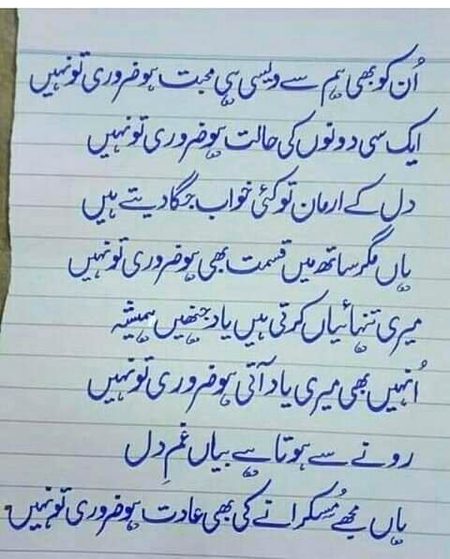 اُن کو بھی ہم سے ویسی ہی محبت ہو ضروری تو نہیں
ایک سی دونوں کی حالت ہو ضروری تو نہیں
دل کے ارمان تو کئی خواب جگا دیتے ہیں
ہاں مگر ساتھ میں قسمت بھی ہو ضروری تو نہیں
میری تنہائیاں کرتی ہیں یاد جنھیں ہمیشہ
اُنہیں بھی میری یاد آتی ہو ضروری تو نہیں
رونے سے ہوتا ہے بیاں غمِ دل
ہاں مجھے مُسکرانے کی بھی عادت ہو ضروری تو نہیں۔